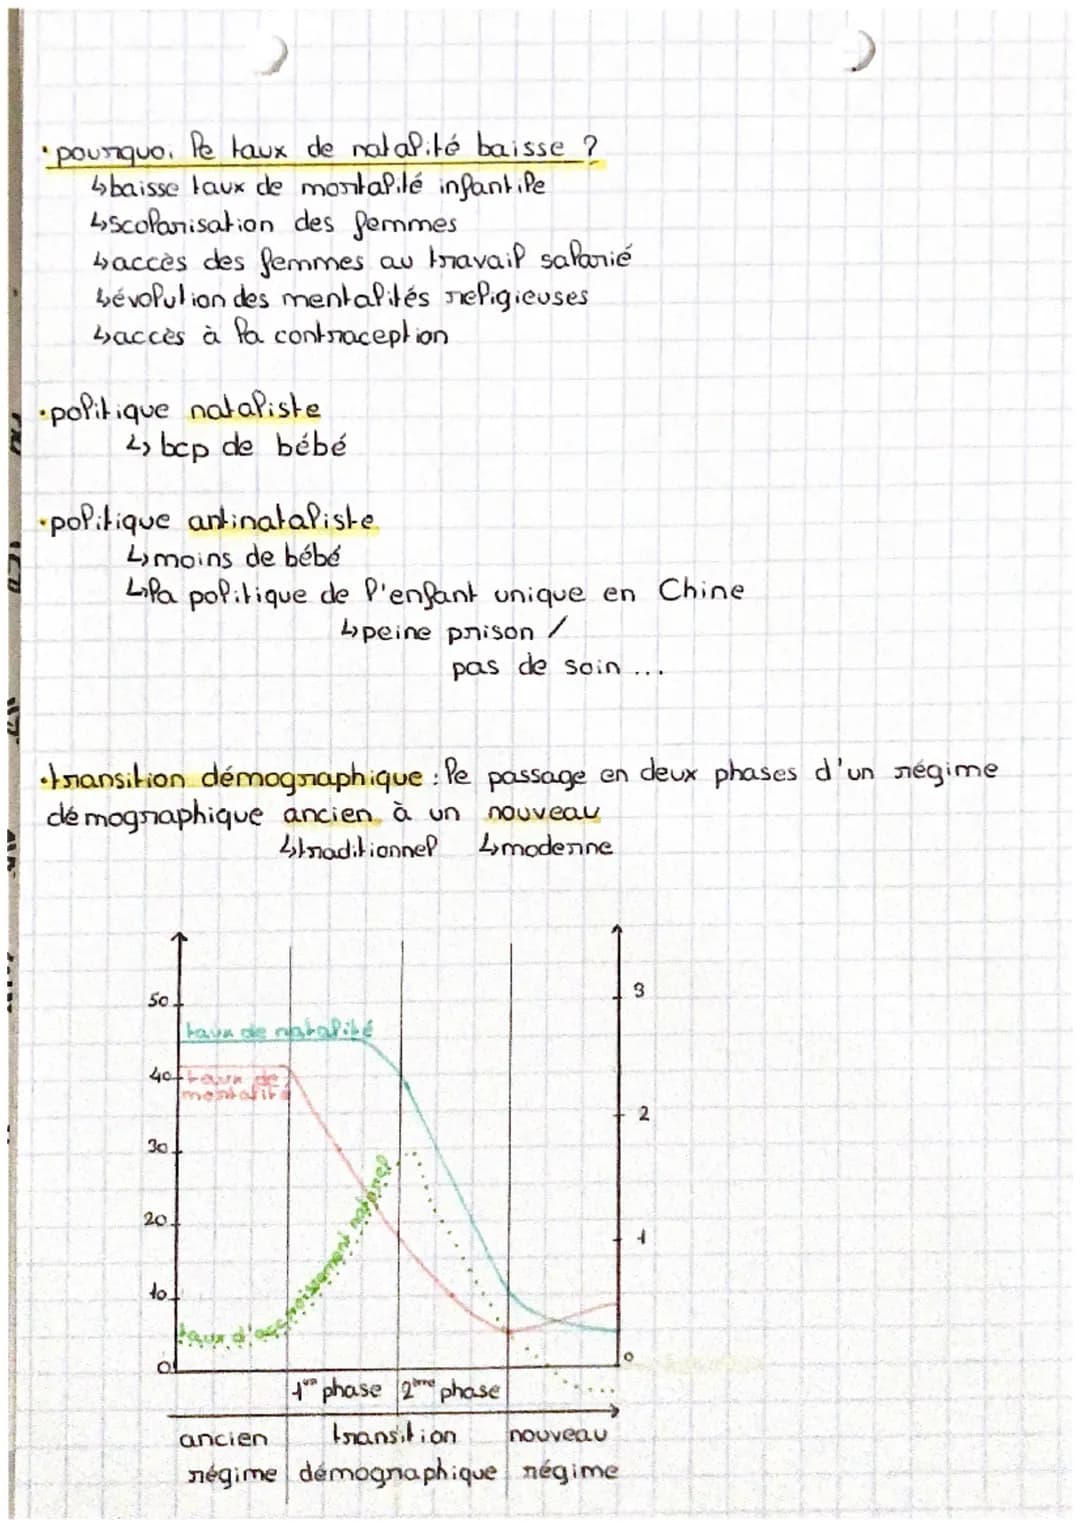 • pourquoi le taux de natalité baisse ?
↳ baisse taux de mortalité infantile
↳ scolarisation des femmes
↳ accès des femmes au travail salarié
↳ évolution des mentalités religieuses
↳ accès à la contraception
• politique nataliste
↳ bcp de bébé
• politique antinataliste
↳ moins de bébé
↳ la politique de l'enfant unique en Chine
↳ peine prison /
pas de soin ...
• transition démographique : le passage en deux phases d'un régime
démographique ancien à un nouveau
↳ traditionnel ↳ moderne
50
40
30
20
10
0
taux de natalité
taux de
mortalité
taux d'accroissement naturel
3
2
1
0
1ère phase 2ème phase
ancien transition nouveau
régime démographique régime